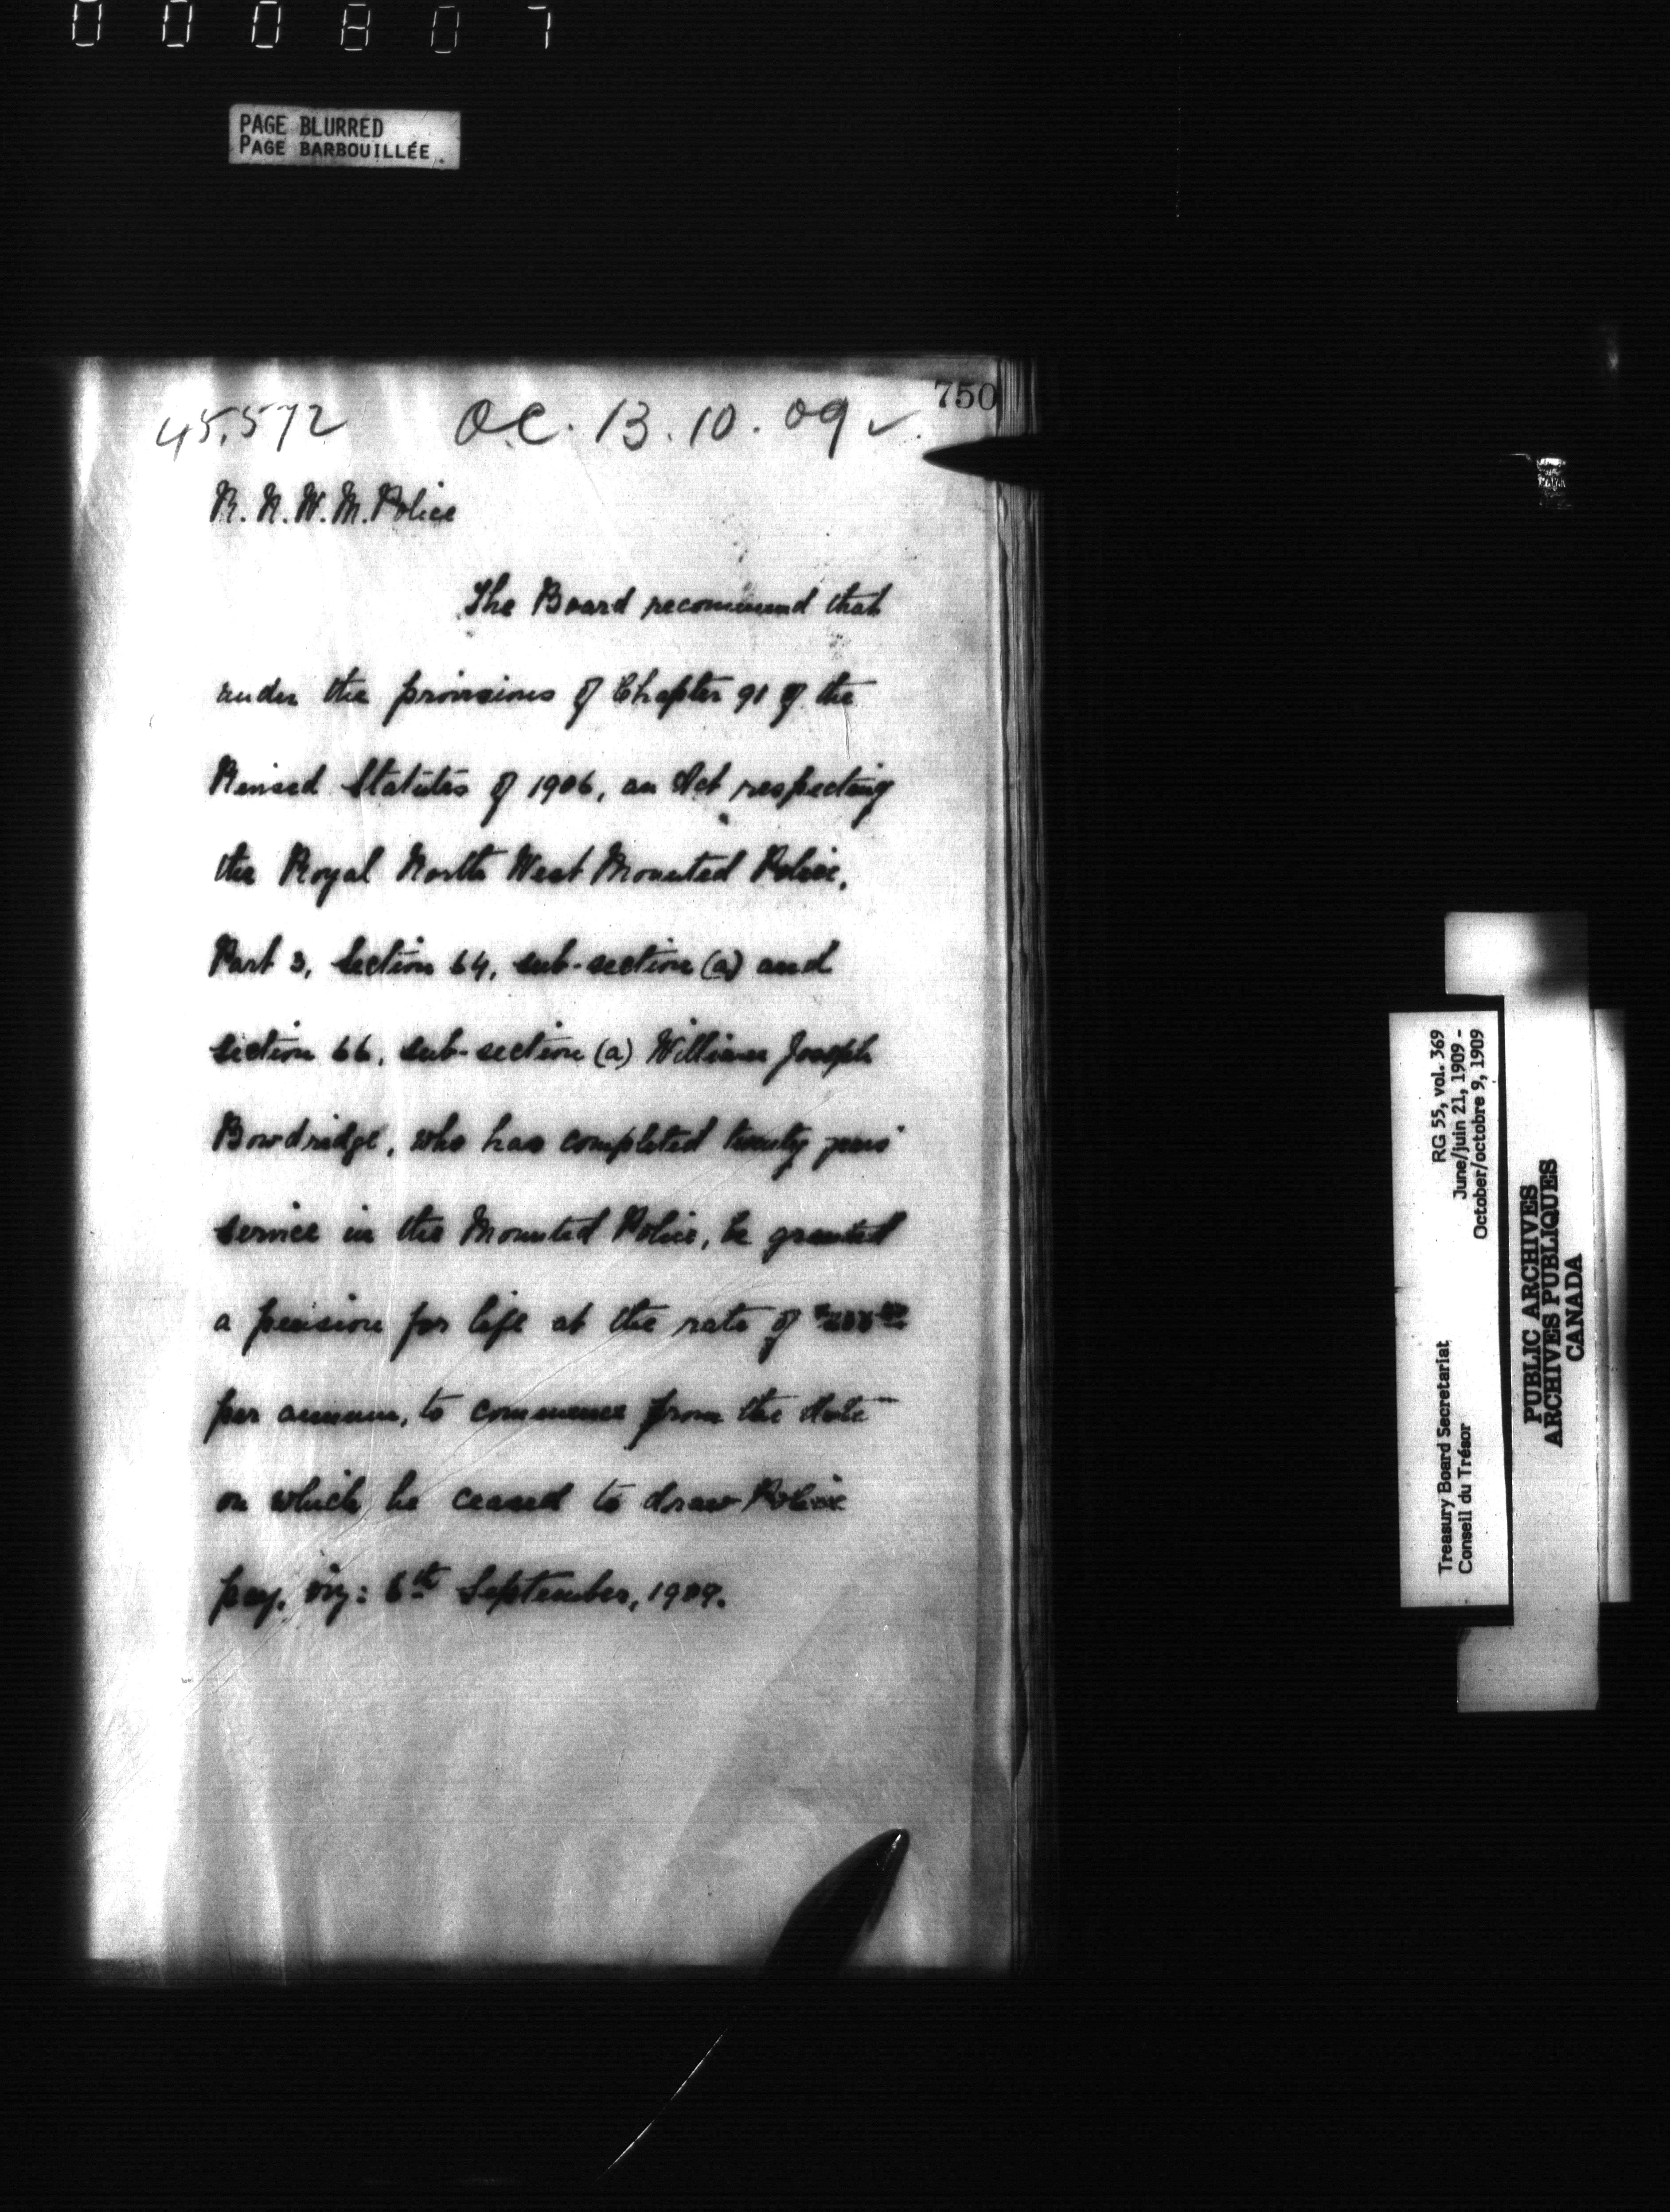 000807
PAGE BLURRED
PAGE BARBOUILLÉE
750
45,572 O.C. 13.10.09 ✓
R.N.W.M. Police
The Board recommend that
under the provisions of Chapter 91 of the
Revised Statutes of 1906, an Act respecting
the Royal North West Mounted Police,
Part 3, Section 64, sub-section (a) and
section 66, sub-section (a) William Joseph
Bowdridge, who has completed twenty years'
service in the Mounted Police, be granted
a pension for life at the rate of
per annum, to commence from the date
on which he ceased to draw Police
pay, viz: 6th September, 1909.
Treasury Board Secretariat RG 55, vol. 369
Conseil du Trésor June/juin 21, 1909 -
October/octobre 9, 1909
PUBLIC ARCHIVES
ARCHIVES PUBLIQUES
CANADA